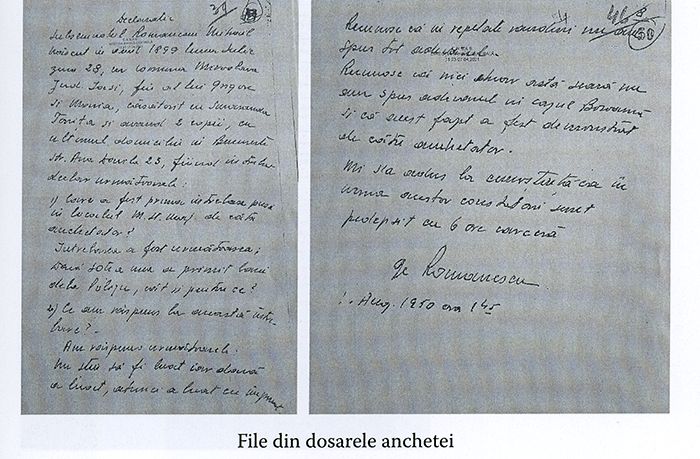 Declarație
Subsemnatul Romanescu Mihail
născut în anul 1899 luna Iulie
ziua 28, în comuna
Jud. Iași, fiu al lui Grigore
și Maria, căsătorit cu Smaranda
și având 2 copii, cu
ultimul domiciliu în București
str. 23, fiind
declar următoarele:
1) Care a fost prima întrebare pusă
în localul de către
anchetator?
Întrebarea a fost următoarea;
Dacă soția mea a primit bani
dela Poliție, cât și pentru ce?
2) Ce am răspuns la această între
bare? -
Am răspuns următoarele.
Nu știu să fi luat iar dacă
a luat, atunci a luat cu împrumut
Recunosc că în repetate rânduri nu am
spus tot adevărul
Recunosc că nici chiar astă seară nu
am spus adevărul în cazul
și că acest fapt a fost demonstrat
de către anchetator.
Mi s'a adus la cunoștință că în
urma acestor constatări sunt
pedepsit cu 6 ore carceră
Romanescu
1. Aug. 1950 ora 1 45
50
File din dosarele anchetei